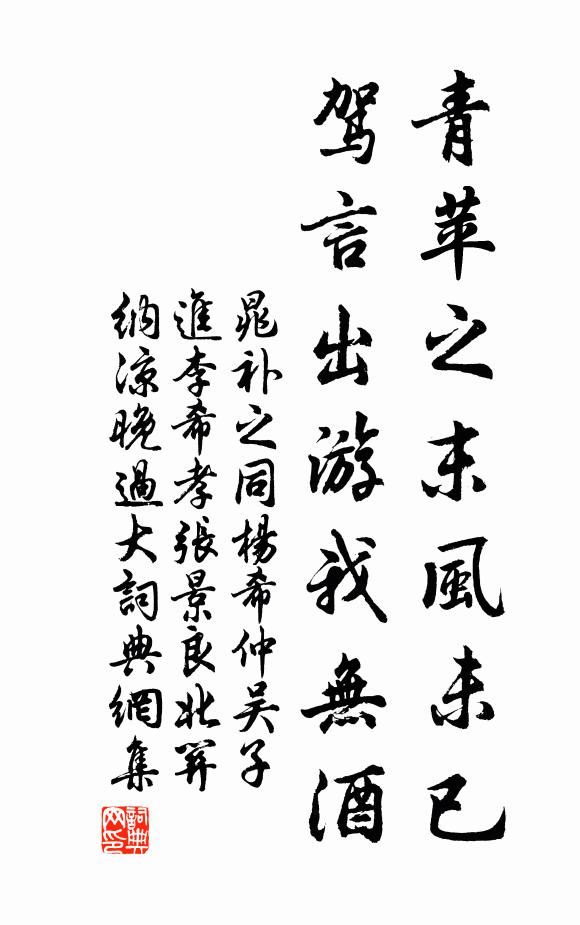 青苹之末風未已
驾言出游我無酒
晁补之同楊希仲吴子
進李希孝張景良北罪
納凉晚過大詞典網集
詞典网印